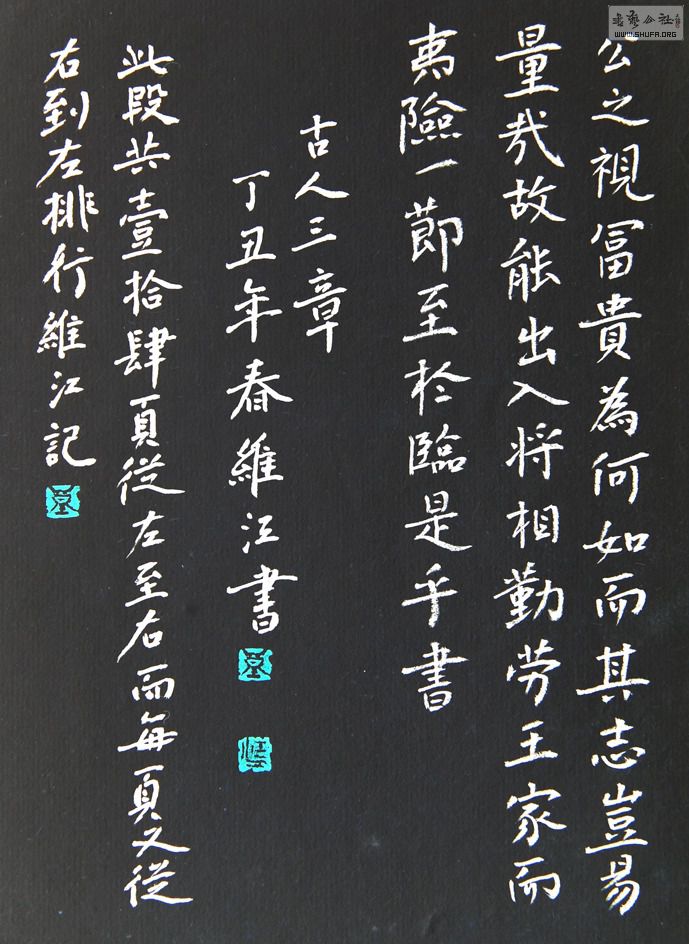 公之視冨貴為何如而其志豈易
量哉故能出入将相勤劳王家而
夷險一節至於臨是乎書
古人三章
丁丑年春維江書
此段共壹拾肆頁從左至右而每頁又從
右到左排行維江記
WWW.SHUFA.ORG